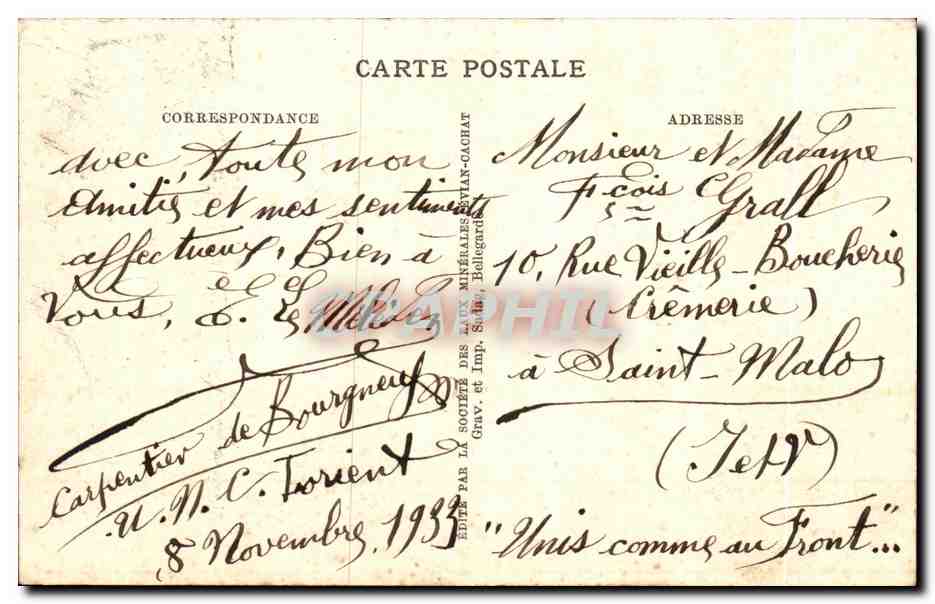 CARTE POSTALE
CORRESPONDANCE
avec, toute mon
amitié et mes sentiments
affectueux, Bien à
Vous,
Carpentier de Bourgneuf
U.N.C. Lorient
8 Novembre 1933
ÉDITÉ PAR LA SOCIÉTÉ DES EAUX MINÉRALES D'ÉVIAN-CACHAT
Grav. et Imp. Sadag, Bellegarde
ADRESSE
Monsieur et Madame
Fçois Grall
10, Rue Vieille-Boucherie
(Crêmerie)
à Saint-Malo
(I et V)
"Unis comme au Front"...
DELCAMPHIL